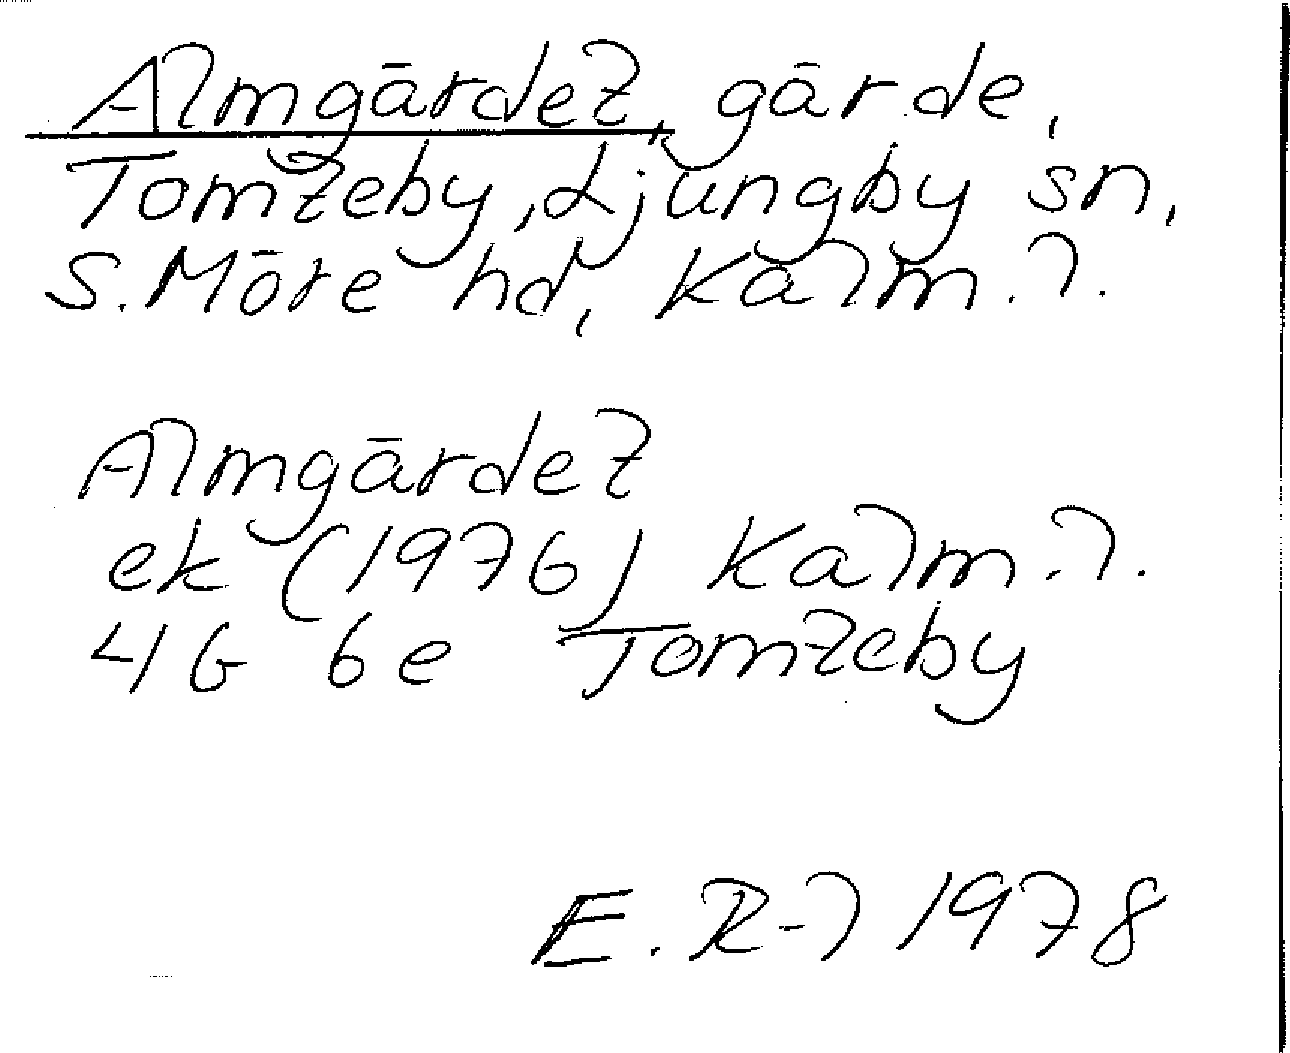 Almgårdet, gårde,
Tomteby, Ljungby sn,
S. Möre hd, Kalm. l.
Almgårdet
ek (1976) Kalm. l.
4G 6e Tomteby
E. R-l 1978